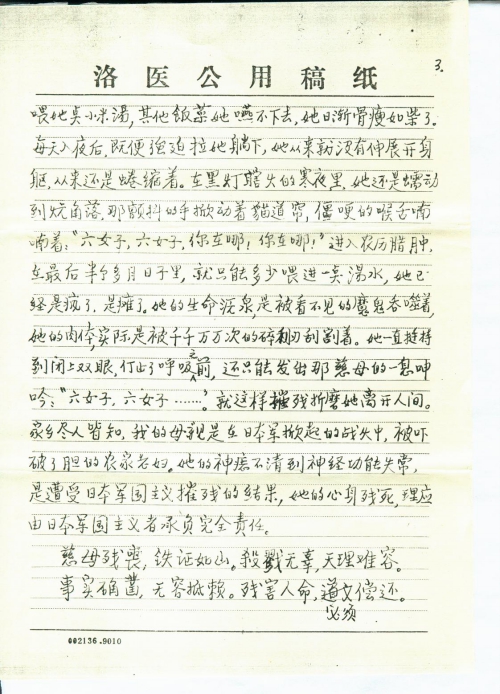 3.
洛医公用稿纸
喂她点小米湯,其他飯菜她嚥不下去,她日漸骨瘦如柴了。
每天入夜后,既便強迫拉她躺下,她从来就没有伸展开身
躯,从来还是蜷缩着。在黑灯瞎火的寒夜里,她还是蠕动
到炕角落,那颤抖的手掀动着貓道帘,僵哽的喉舌喃
喃着:“六女子,六女子,你在哪!你在哪!”进入农历腊月,
在最后半个多月日子里,就只能多少喂进一点湯水,她已
经是疯了,是瘫了。她的生命泉,是被看不见的魔鬼吞噬着,
她的肉体,实际是被千千万万次的碎刮割着。她一直挺持
到闭上双眼,停止了呼吸之前,还只能发出那慈母的一息呻
吟:“六女子,六女子……”。就这样摧残折磨她离开人间。
家乡尽人皆知,我的母親是在日本军掀起的战火中,被吓
破了胆的农家老妇。她的神痣不清到神经功能失常,
是遭受日本军国主义摧残的结果,她的心身残死,理应
由日本军国主义者承负完全责任。
慈母残喪,铁证如山。殺戮无辜,天理难容。
事实确凿,无容抵赖。残害人命,必须偿还。
002136.9010